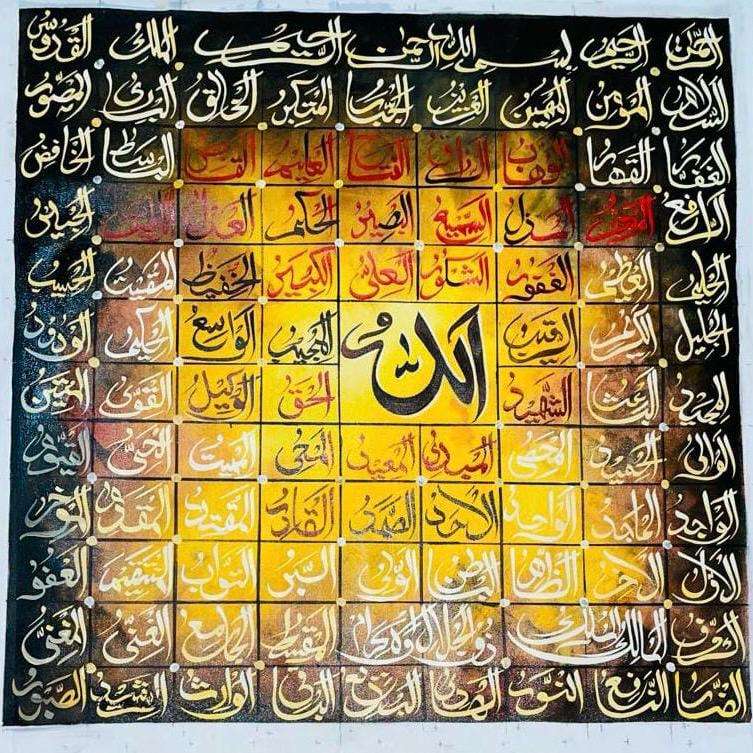 الرحمن الرحيم بسم الله الرحمن الرحيم الملك القدوس
السلام المؤمن المهيمن العزيز الجبار المتكبر الخالق البارئ المصور
الغفار القهار الوهاب الرزاق الفتاح العليم القابض الباسط الخافض
الرافع المعز المذل السميع البصير الحكم العدل اللطيف الخبير
الحليم العظيم الغفور الشكور العلي الكبير الحفيظ المقيت الحسيب
الجليل الكريم الرقيب الله المجيب الواسع الحكيم الودود
المجيد الباعث الشهيد الحق الوكيل القوى المتين
الحميد المحصى المبدئ المعيد المحيى المميت الحي القيوم
الواجد الماجد الواحد الاحد الصمد القادر المقتدر المقدم المؤخر
الاول الاخر الظاهر الباطن البر التواب المنتقم العفو
الرؤف مالك الملك ذو الجلال والاكرام المقسط الجامع الغنى المغنى
الضار النافع النور الهادى البديع الباقى الوارث الرشيد الصبور